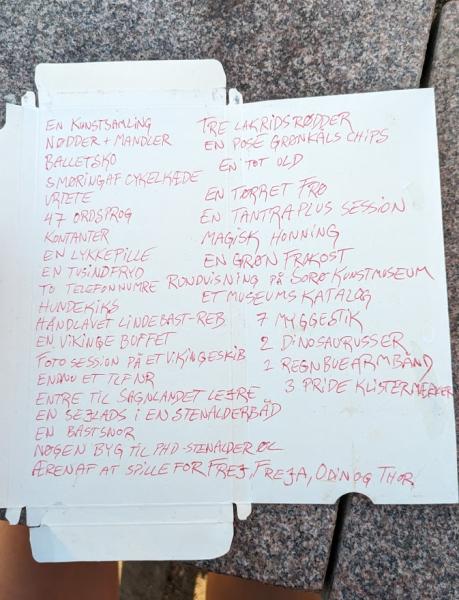 EN KUNSTSAMLING
NØDDER + MANDLER
BALLETSKO
SMØRING AF CYKELKÆDE
URTETE
47 ORDSPROG
KONTANTER
EN LYKKEPILLE
EN TUSINDFRYD
TO TELEFONNUMRE
HUNDEKIKS
HÅNDLAVET LINDEBAST-REB
EN VIKINGE BUFFET
FOTO SESSION PÅ ET VIKINGESKIB
ENDNU ET TLF NR
ENTRE TIL SAGNLANDET LEJRE
EN SEJLADS I EN STENALDERBÅD
EN BASTSNOR
NØGEN BYG TIL PHD-STENALDER ØL
ÆREN AF AT SPILLE FOR FREJ, FREJA, ODIN OG THOR
TRE LAKRIDSRØDDER
EN POSE GRØNKÅLS CHIPS
EN TOT ULD
EN TØRRET FRØ
EN TANTRAPLUS SESSION
MAGISK HONNING
EN GRØN FROKOST
RUNDVISNING PÅ SORØ KUNSTMUSEUM
ET MUSEUMS KATALOG
7 MYGGESTIK
2 DINOSAURUSSER
1 REGNBUEARMBÅND
3 PRIDE KLISTERMÆRKER